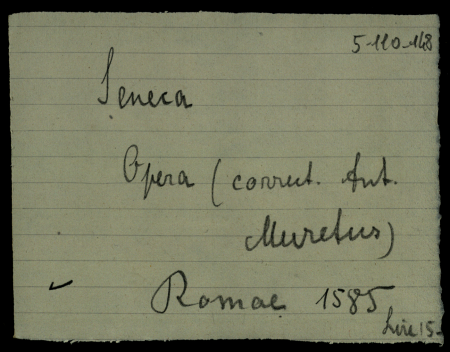 5-110-148
Seneca
Opera (correct. Ant.
Muretus)
Romae 1585
Lire 15-